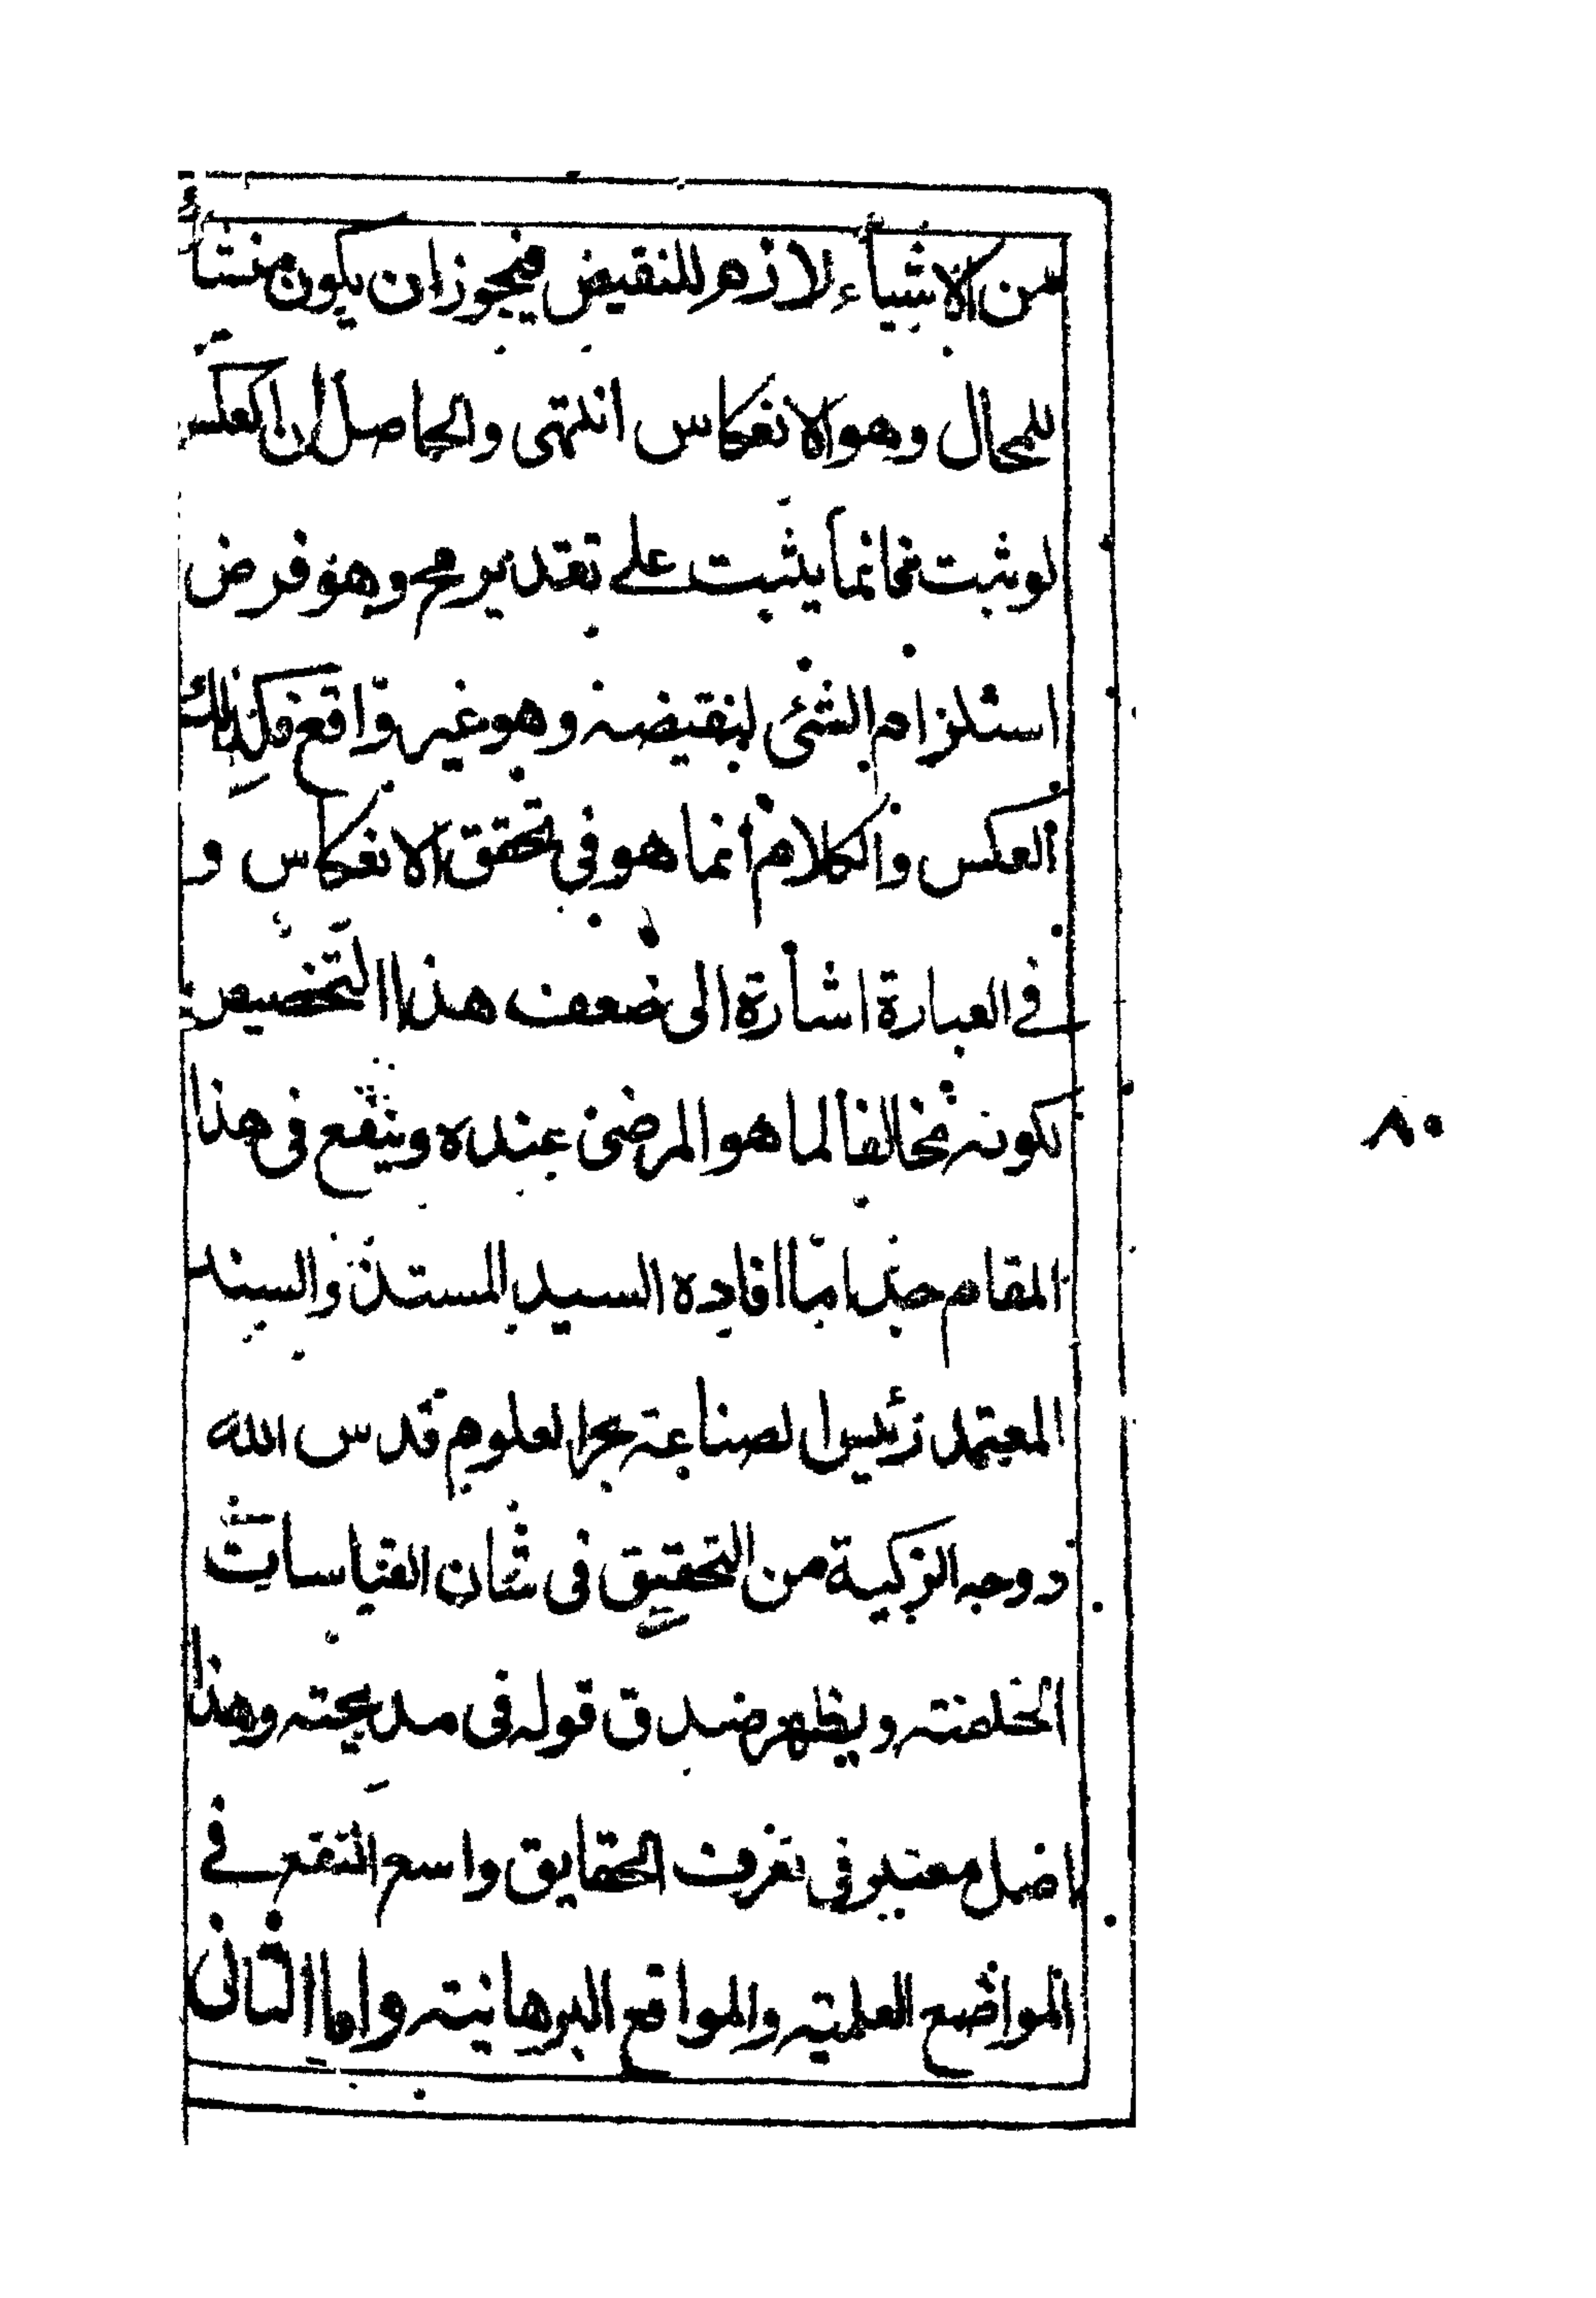 من الاشياء لازم للنقيض فيجوز ان يكون منشأ
للمحال وهو الانعكاس انتهى والحاصل ان العكس
لو ثبت فانما يثبت على تقدير مح وهو فرض
استلزام الشئ لنقيضه وهو غير واقع فكذلك
العكس والكلام انما هو في تحقق الانعكاس و
في العبارة اشارة الى ضعف هذا التخصيص
لكونه مخالفا لما هو المرضى عنده وينفع فى هذا
المقام جدا ما افاده السيد المستند والسند
المعتمد رئيس الصناعة بحر العلوم قدس الله
روحه الزكية من التحقيق فى شان القياسات
الخلفته ويظهر صدق قوله فى مديحته وهذا
اصل معتبر فى تعرف الحقايق واسع النفع في
المواضع العلميته والمواقع البرهانيته واما الثانى
٨٠